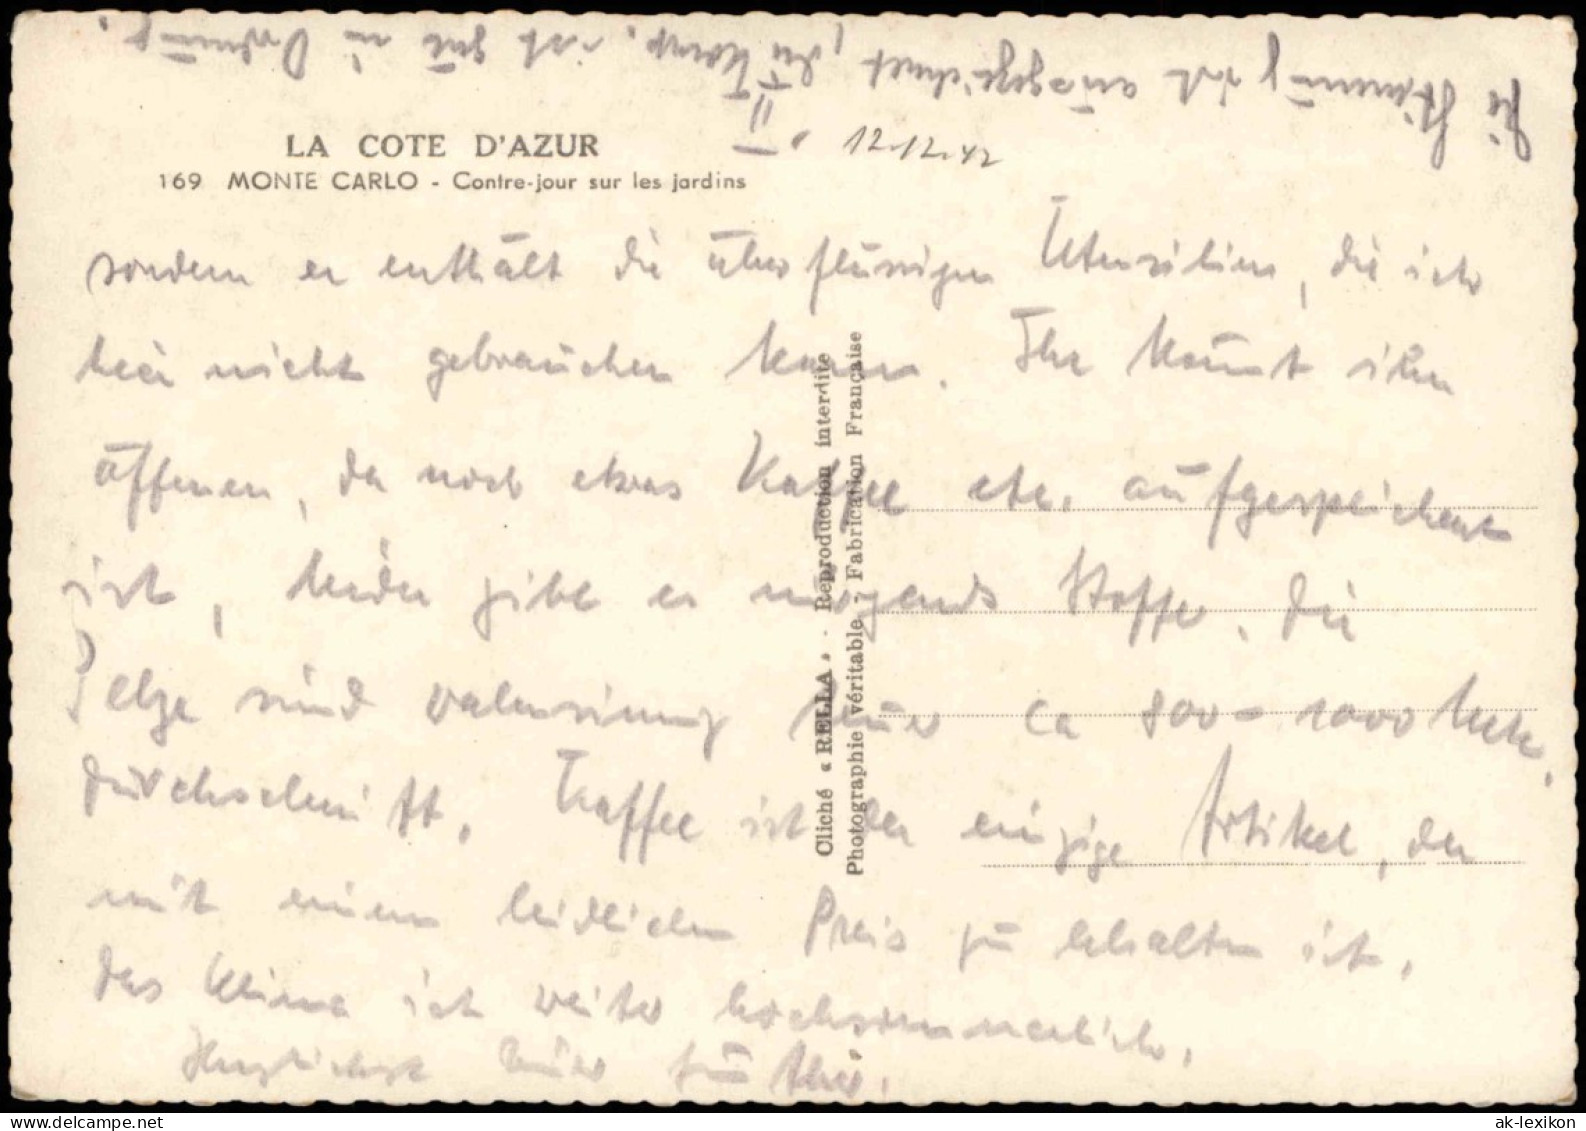 Die Stimmung ist ausgezeichnet, die Komp. ist gut in
LA COTE D'AZUR
II. 12.12.42
169 MONTE CARLO - Contre-jour sur les jardins
sondern er enthält die überflüssigen Utensilien, die ich
hier nicht gebrauchen kann. Ihr könnt ihn
öffnen, da noch etwas Kaffee etc. aufgespeichert
ist, leider gibt es nirgends Stoffe. Die
Pelze sind hier ca 800-1000 Mk.
durchschnitt. Kaffee ist der einzige Artikel, der
mit einem leidlichen Preis zu erhalten ist.
Das Klima ist weiter hochsommerlich.
Herzlichst Euer
Cliché « RELLA » - Reproduction interdite
Photographie véritable - Fabrication Française
ak-lexikon